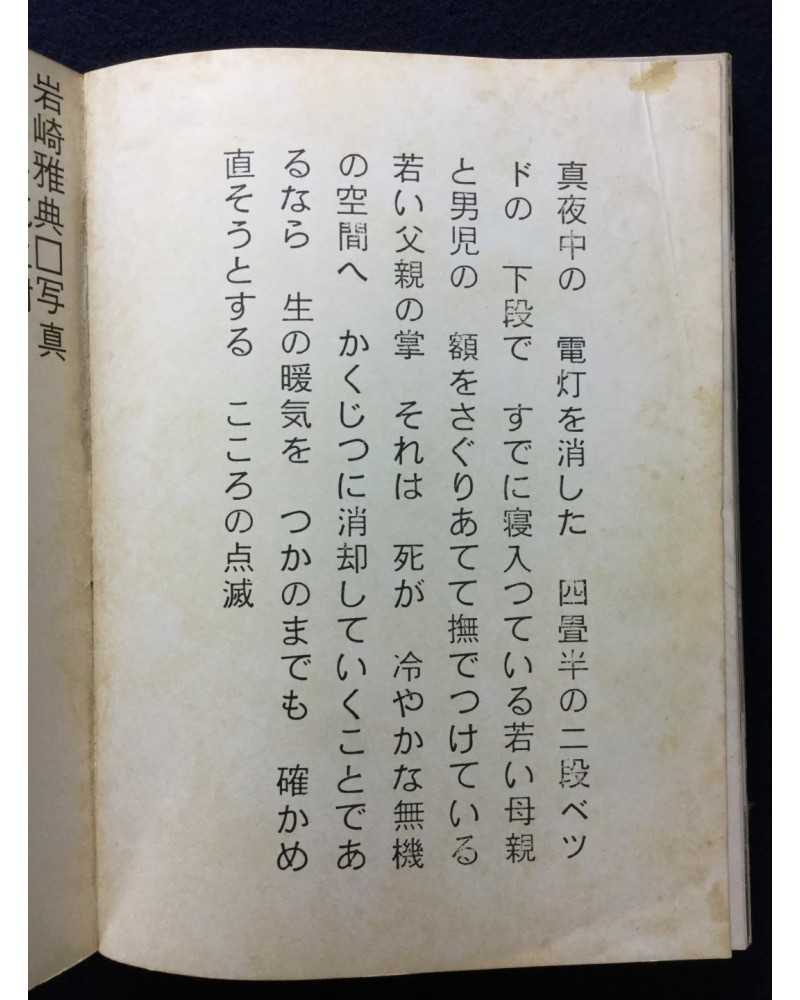 真夜中の　電灯を消した　四畳半の二段ベツ
ドの　下段で　すでに寝入つている若い母親
と男児の　額をさぐりあてて撫でつけている
若い父親の掌　それは　死が　冷やかな無機
の空間へ　かくじつに消却していくことであ
るなら　生の暖気を　つかのまでも　確かめ
直そうとする　こころの点滅
岩崎雅典□写真